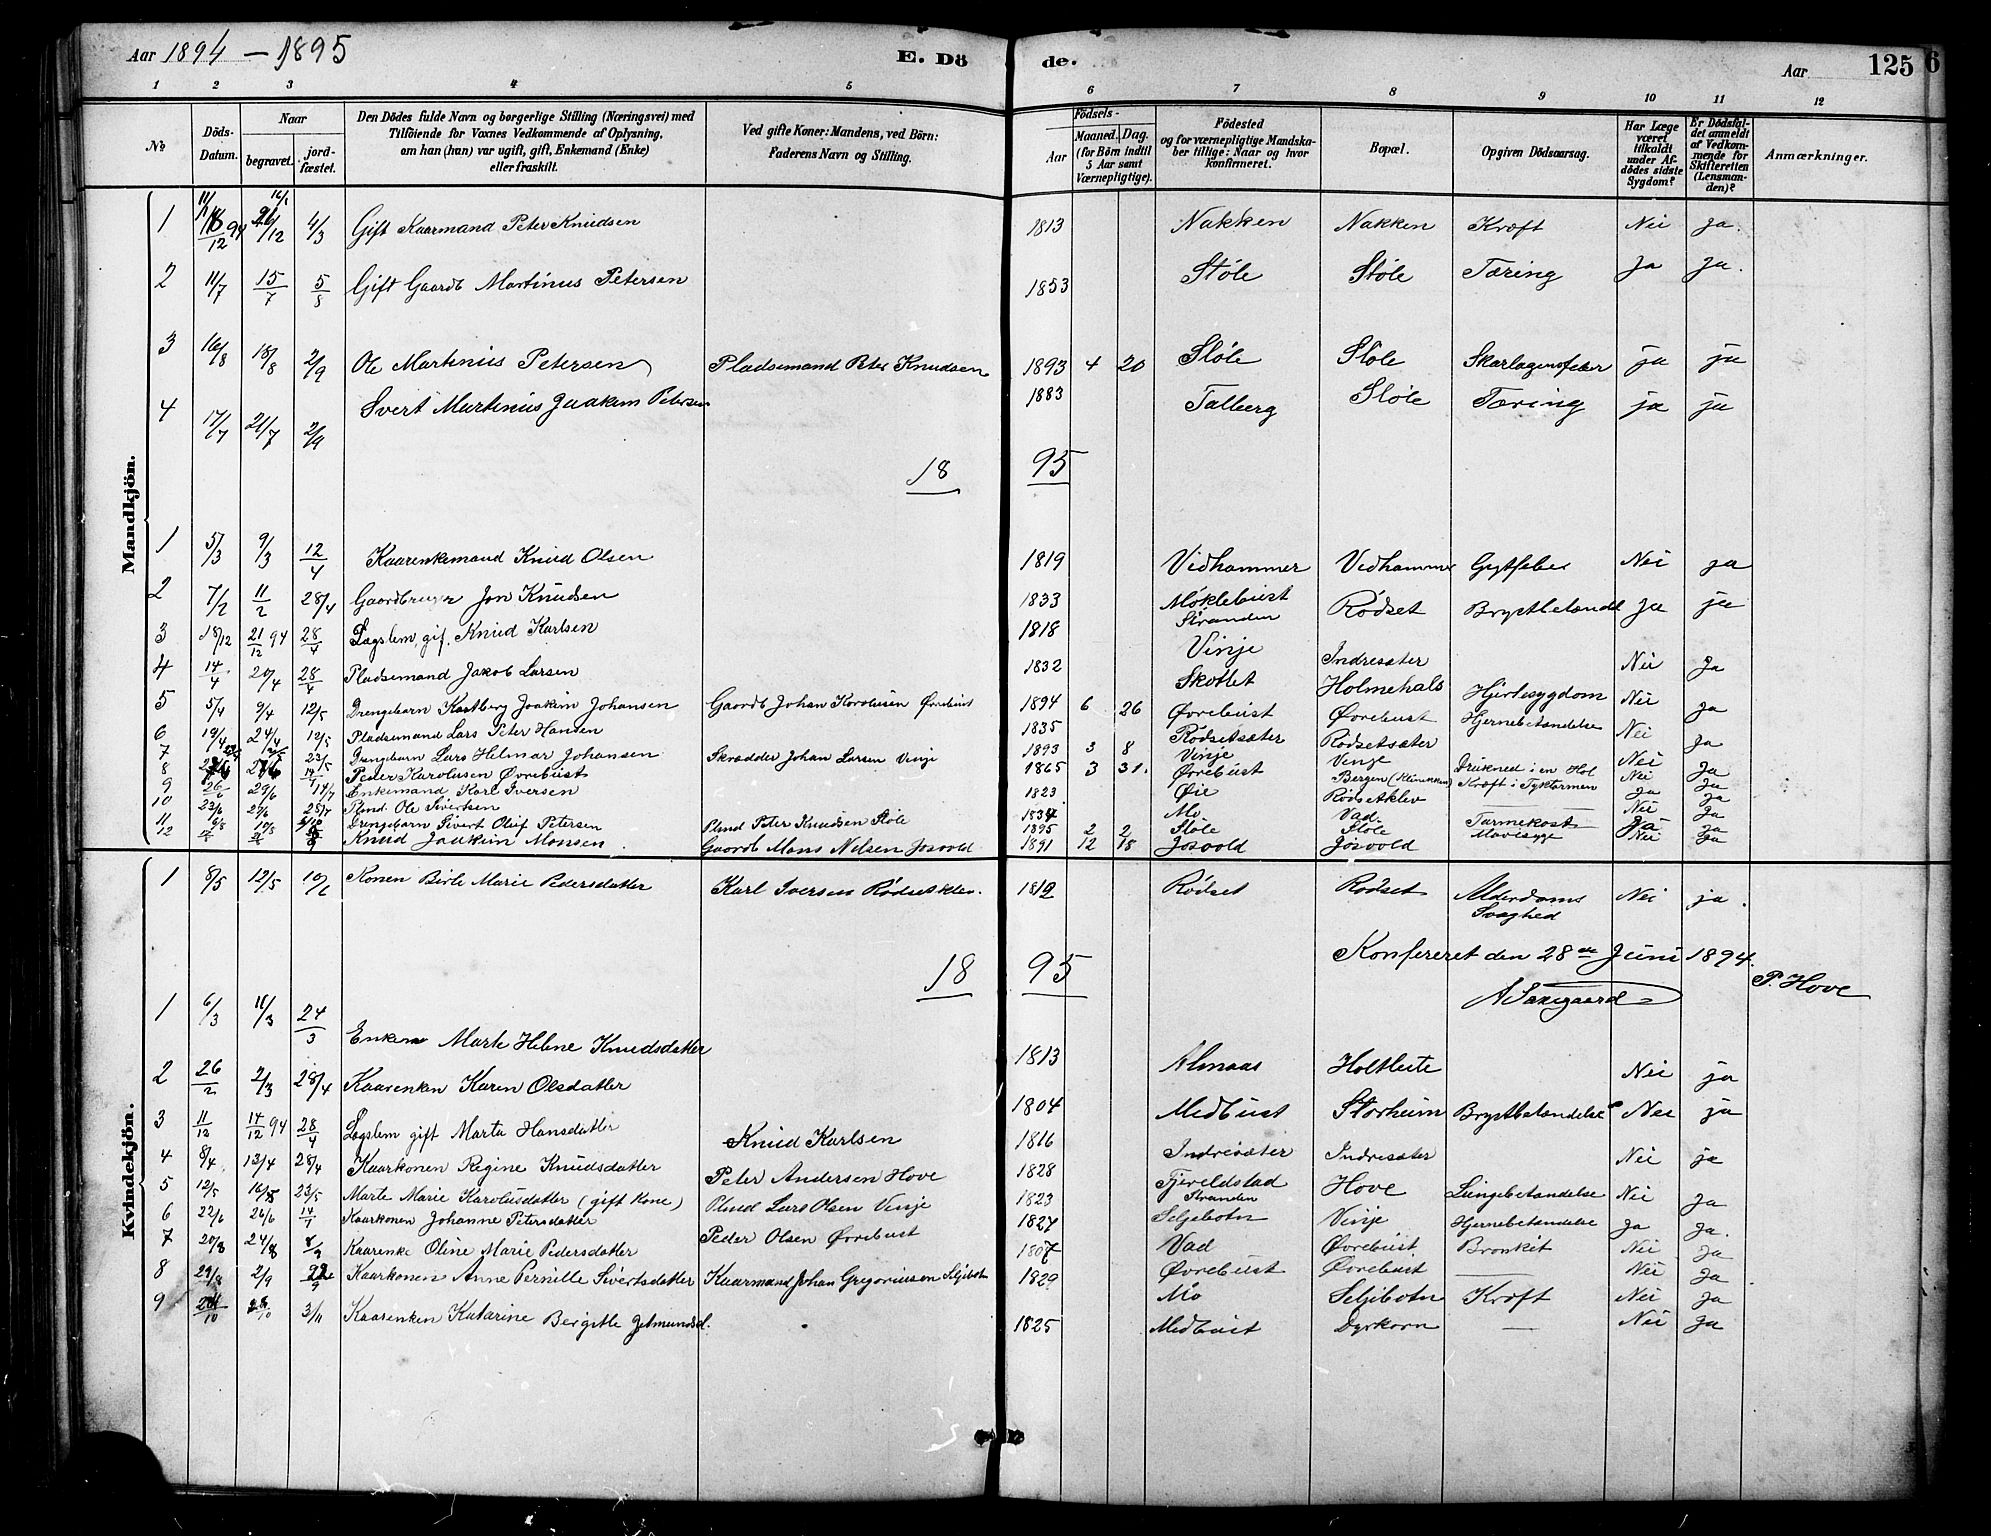 Aar 1894 – 1895 E. Dö de. Aar 125 6
1 2 3 4 5 6 7 8 9 10 11 12
No
Döds-Datum.
Naar begravet. jordfæstet.
Den Dödes fulde Navn og borgerlige Stilling (Næringsvei) med
Tilföiende for Voxnes Vedkommende af Oplysning,
om han (hun) var ugift, gift, Enkemand (Enke)
eller fraskilt.
Ved gifte Koner: Mandens, ved Börn:
Faderens Navn og Stilling.
Födsels-
Aar Maaned. Dag.
(for Börn indtil
5 Aar samt
Værnepligtige).
Födested
og for værnepligtige Mandskaber
tillige: Naar og hvor
konfirmeret.
Bopæl.
Opgiven Dödsaarsag.
Har Læge
været
tilkaldt
under Afdödes
sidste
Sygdom?
Er Dödsfaldet
anmeldt
af Vedkommende
for
Skifteretten
(Lensmanden)?
Anmærkninger.
Mandkjön.
1 4/3 Gift Kaarmand Peter Knudsen 1813 Nakken Nakken Kræft Nei Ja.
2 11/7 15/7 5/8 Gift Gaardb Martinus Petersen 1853 Støle Støle Tæring Ja Ja.
3 16/8 18/8 2/9 Ole Martinius Petersen Pladsemand Peter Knudsen 1893 4 20 Støle Støle Skarlagensfeber ja ja
4 17/7 21/7 2/9 Sivert Martinius Joakim Petersen 1883 Talberg Støle Tæring ja ja
18 95
1 5/3 9/3 12/4 Kaarenkemand Knud Olsen 1819 Vidhammer Vedhammer Gigtfeber Nei ja
2 7/2 11/2 28/4 Gaardbruger Jon Knudsen 1833 Møklebust Rødset Brystbetændel Ja ja
3 18/12 21/12 94 28/4 Lægslem, gif. Knud Karlsen 1818 Stranden Vinje Indresæter Nei Ja
4 14/4 20/4 28/4 Pladsemand Jakob Larsen 1832 Skottet Holmehals Hjertesygdom Nei Ja
5 5/4 9/4 12/5 Drengebarn Kastberg Joakim Johansen Gaardb Johan Karolusen Øvrebust 1894 6 26 Øvrebust Øvrebust Hjernebetændelse Nei Ja
6 19/4 24/4 12/5 Pladsemand Lars Peter Hansen 1835 Rødsetsæter Rødsetsæter
7 23/5 Drengebarn Lars Helmar Johansen Skrædder Johan Larsen Vinje 1893 3 8 Vinje Vinje Drukned i en Høl Nei Ja
8 Peder Karolusen Øvrebust 1865 3 31. Øvrebust Bergen Kræft i Tyktarmen Nei Ja
9 26/6 29/6 14/7 Enkemand Karl Iversen 1823 Øie Rødsetklev Ja Ja
10 23/6 27/6 28/7 Plmd. Ole Sivertsen 1834 Mo Vad. Nei Ja
11 6/8 10/8 Drengebarn Sivert Oluf Petersen Plmd Peter Knudsen Støle 1895 2 2 Støle Støle Tarmekost Ja Ja
12 Knud Joakim Monsen Gaardb Mons Nilsen Josvold 1891 12 18 Josvold Josvold Mavesyge Nei Ja
Kvindekjön.
1 8/5 12/5 10/6 Konen Birte Marie Pedersdatter Karl Iversen Rødsetklev. 1812 Rødset Rødset Alderdoms Svaghed Nei ja.
Konfereret den 28de Juni 1894.
18 95
P. Hove
1 6/3 11/3 24/3 Enken Marte Helene Knudsdatter 1813 Almaas Holtleite Nei ja
2 26/2 2/3 28/4 Kaarenken Karen Olsdatter 1804 Medbust Storheim Brystbetændelse Nei ja
3 11/12 14/12 94 28/4 Lægslem gift Marta Hansdatter Knud Karlsen 1816 Indresæter Indresæter Nei ja
4 8/4 13/4 28/4 Kaarkonen Regine Knudsdatter Peter Andersen Hove 1828 Fjereldstad Stranden Hove Lungebetændelse Nei Ja
5 12/5 16/5 23/5 Marte Marie Karolusdatter (gift Kone) Plmd Lars Olsen Vinje 1823 Seljebotn Vinje Hjernebetændelse Ja Ja.
6 22/6 26/6 Kaarkonen Johanne Petersdatter Peder Olsen Øvrebust 1827 Vad Øvrebust Bronkit Nei Ja
7 20/8 24/8 Kaarenke Oline Marie Pedersdatter 1807 Øvrebust Øvrebust Nei Ja
8 29/8 2/9 22/9 Kaarkonen Anne Pernille Sivertsdatter Kaarmand Johan Gregoriusen Seljebotn 1829 Mo Seljebotn Kræft Nei Ja
9 3/11 Kaarenken Katarine Bergitte Jetmundsd. 1825 Medbust Dyrkorn Nei Ja